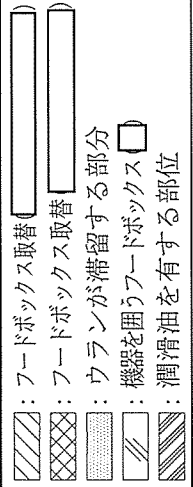 ：フードボックス取替（　　　　　）
：フードボックス取替（　　　　　）
：ウランが滞留する部分
：機器を囲うフードボックス（　）
：潤滑油を有する部位